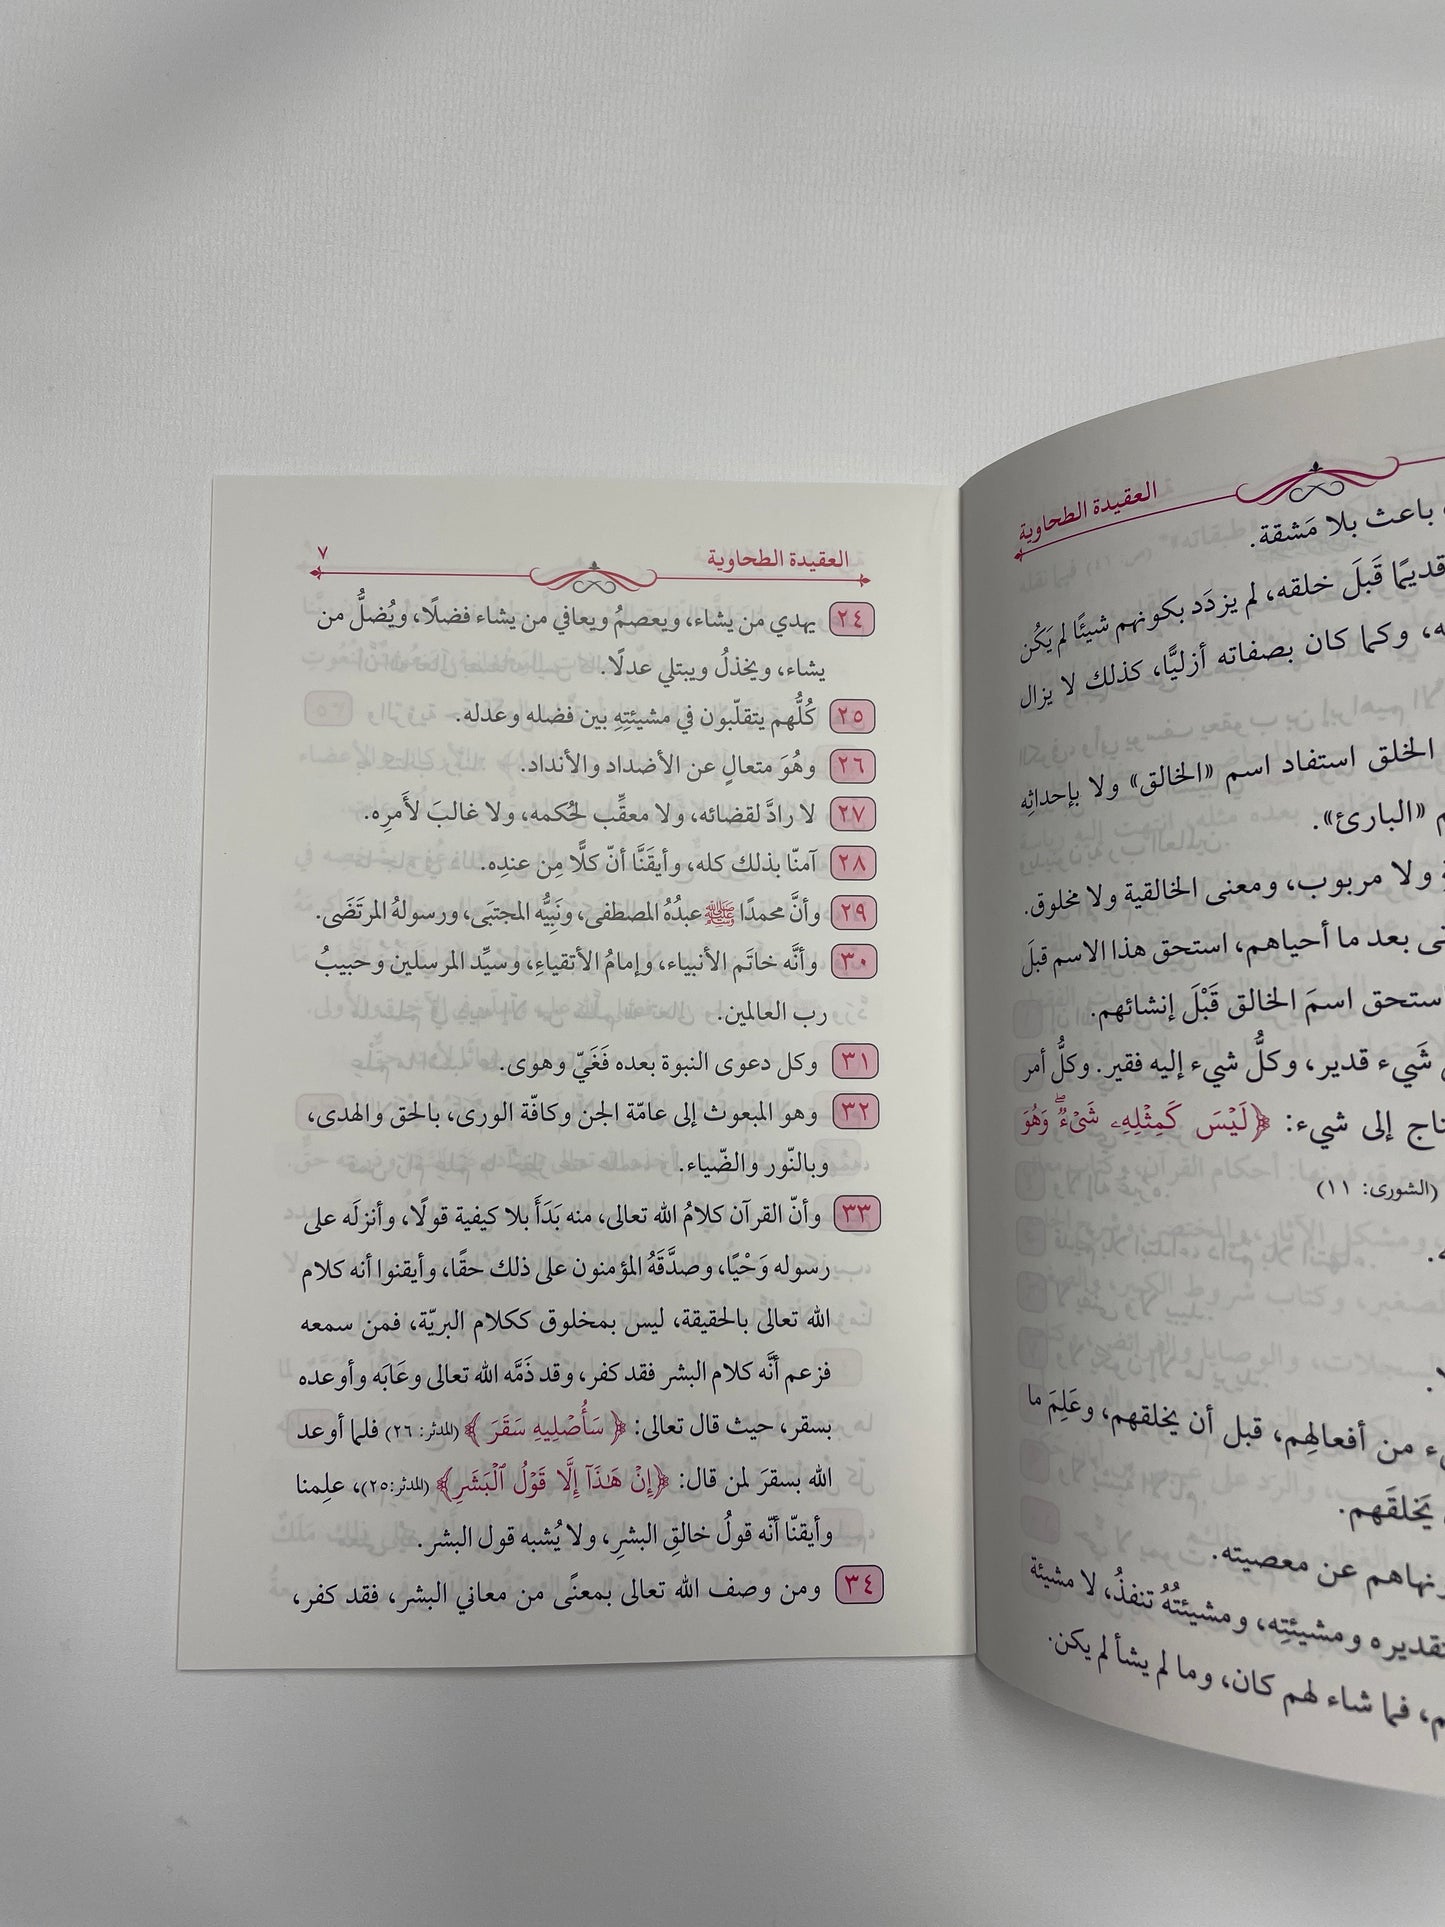 العقيدة الطحاوية
باعث بلا مَشقة.
قديمًا قَبلَ خلقه، لم يزدَد بكونهم شيئًا لم يَكُن
وكما كان بصفاته أزليًّا، كذلك لا يزال
الخلق استفاد اسم «الخالق» ولا بإحداثِهِ
«البارئ».
ولا مربوب، ومعنى الخالقية ولا مخلوق.
بعد ما أحياهم، استحق هذا الاسم قبلَ
استحق اسمَ الخالق قَبْلَ إنشائهم.
شَيء قدير، وكلُّ شيء إليه فقير. وكلُّ أمر
إلى شيء: ﴿لَيْسَ كَمِثْلِهِۦ شَىْءٌۖ وَهُوَ
(الشورى: ١١)
من أفعالِهِم، قبل أن يخلقهم، وعَلِمَ ما
يَخلقَهم.
ونهاهم عن معصيته.
ومشيئتِه، ومشيئتُهُ تنفذُ، لا مشيئة
فما شاء لهم كان، وما لم يشأ لم يكن.
العقيدة الطحاوية ٧
٢٤ يهدي من يشاء، ويعصمُ ويعافي من يشاء فضلًا، ويُضلُّ من
يشاء، ويخذلُ ويبتلي عدلًا.
٢٥ كُلُّهم يتقلّبون في مشيئتِهِ بين فضله وعدله.
٢٦ وهُوَ متعالٍ عن الأضداد والأنداد.
٢٧ لا رادَّ لقضائه، ولا معقِّب لحُكمه، ولا غالبَ لأَمرِه.
٢٨ آمنّا بذلك كله، وأيقَنَّا أنّ كلًّا مِن عندِه.
٢٩ وأنَّ محمدًا ﷺ عبدُهُ المصطفى، ونَبِيُّه المجتبَى، ورسولهُ المرتَضَى.
٣٠ وأنَّه خاتَم الأنبياء، وإمامُ الأتقياءِ، وسيِّد المرسلين وحبيبُ
رب العالمين.
٣١ وكل دعوى النبوة بعده فَغَيّ وهوى.
٣٢ وهو المبعوث إلى عامّة الجن وكافّة الورى، بالحق والهدى،
وبالنّور والضّياء.
٣٣ وأنّ القرآن كلامُ الله تعالى، منه بَدَأَ بلا كيفية قولًا، وأنزلَه على
رسوله وَحْيًا، وصدَّقَهُ المؤمنون على ذلك حقًا، وأيقنوا أنه كلام
الله تعالى بالحقيقة، ليس بمخلوق ككلام البريّة، فمن سمعه
فزعم أنَّه كلام البشر فقد كفر، وقد ذَمَّه الله تعالى وعَابَه وأوعده
بسقر، حيث قال تعالى: ﴿ سَأُصْلِيهِ سَقَرَ ﴾ (المدثر: ٢٦) فلما أوعد
الله بسقرَ لمن قال: ﴿إِنْ هَٰذَآ إِلَّا قَوْلُ ٱلْبَشَرِ﴾ (المدثر:٢٥)، علِمنا
وأيقنّا أنّه قولُ خالقِ البشرِ، ولا يُشبه قول البشر.
٣٤ ومن وصف الله تعالى بمعنًى من معاني البشر، فقد كفر،